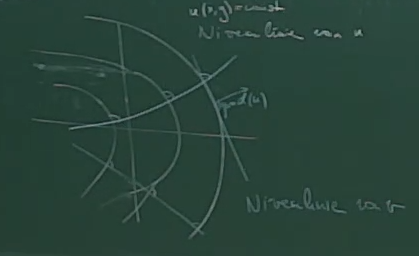 u(x,y)=const
Niveaulinie von u
grad(u)
Niveaulinie von v